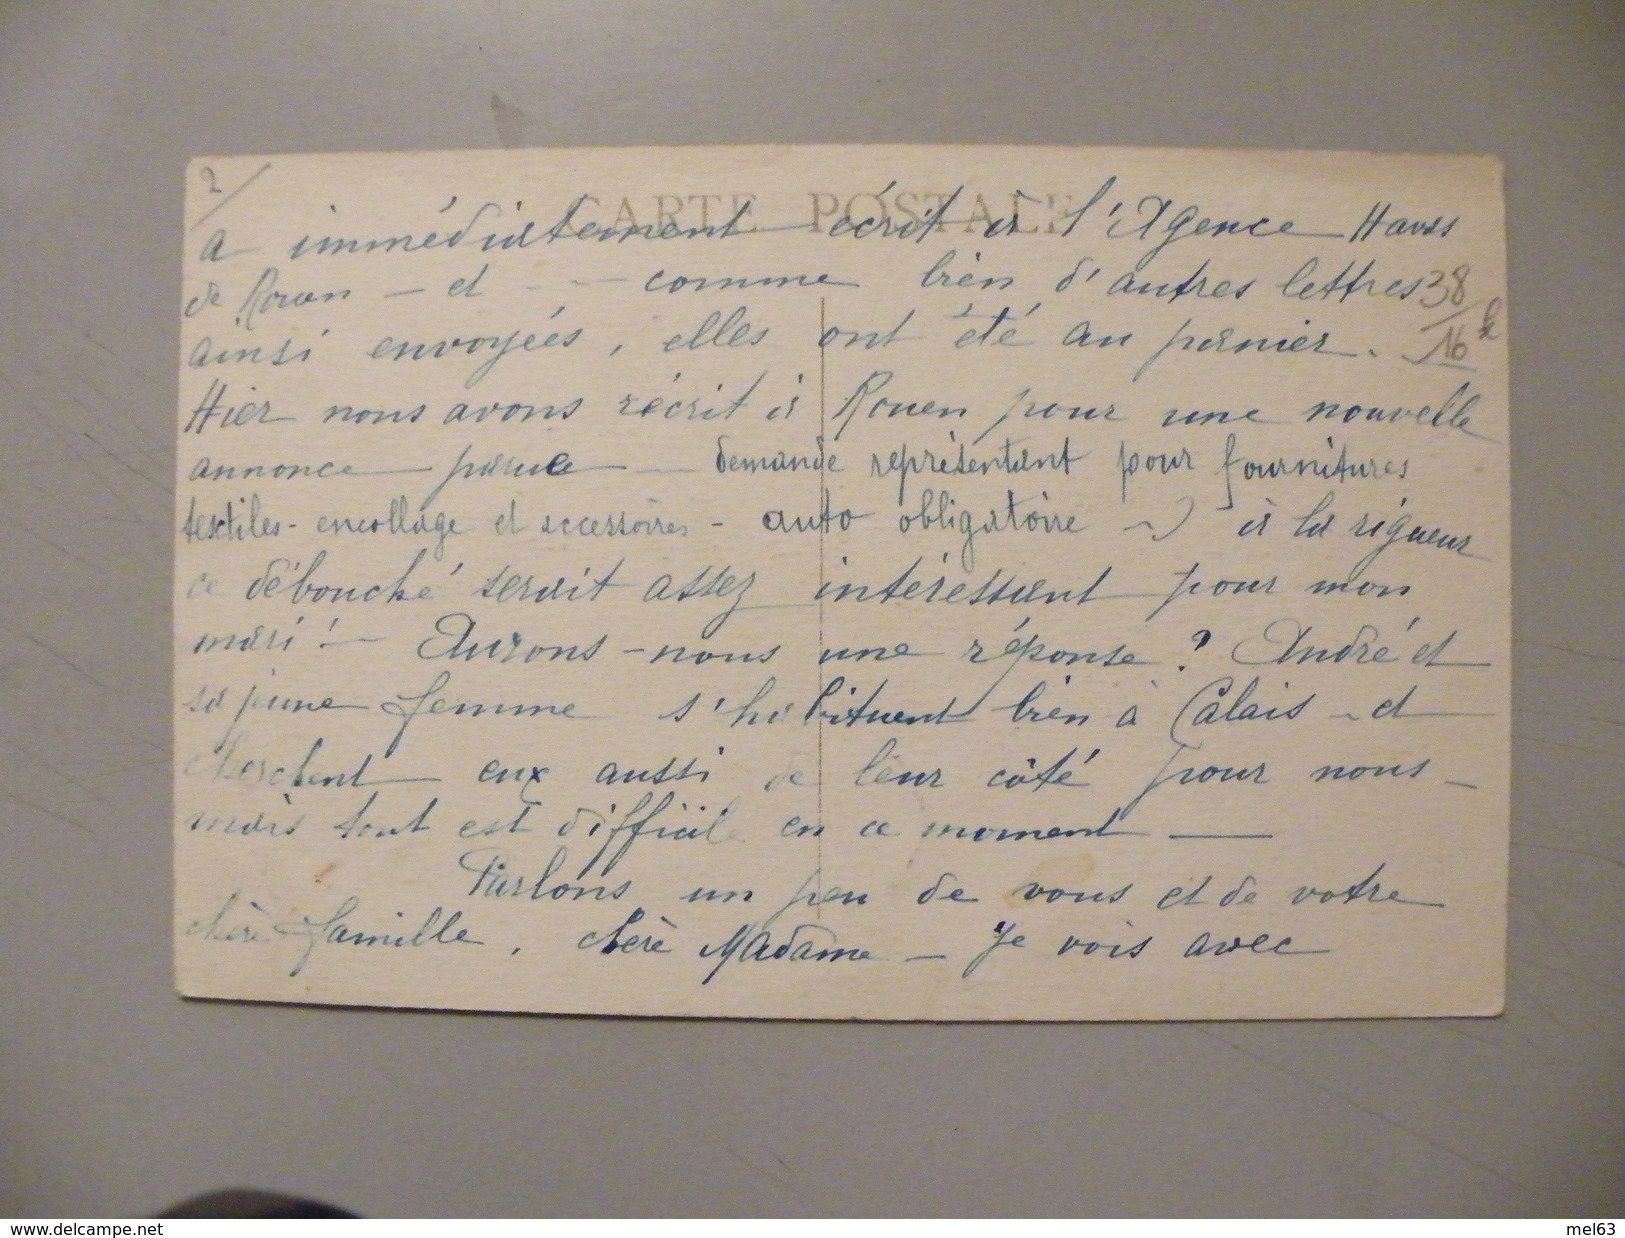 2/
CARTE POSTALE
a immédiatement écrit à l'Agence Havas
de Rouen — et - - - comme bien d'autres lettres
38
ainsi envoyées, elles ont été au panier.
16
Hier nous avons récrit à Rouen pour une nouvelle
annonce parue — demande représentant pour fournitures
textiles - encollage et accessoires - auto obligatoire -) à la rigueur
ce débouché serait assez intéressant pour mon
mari ! - Aurons-nous une réponse ? André et
sa jeune femme s'habituent bien à Calais - et
cherchent eux aussi de leur côté pour nous -
mais tout est difficile en ce moment —
Parlons un peu de vous et de votre
chère famille, chère Madame - Je vois avec
www.delcampe.net
mel63